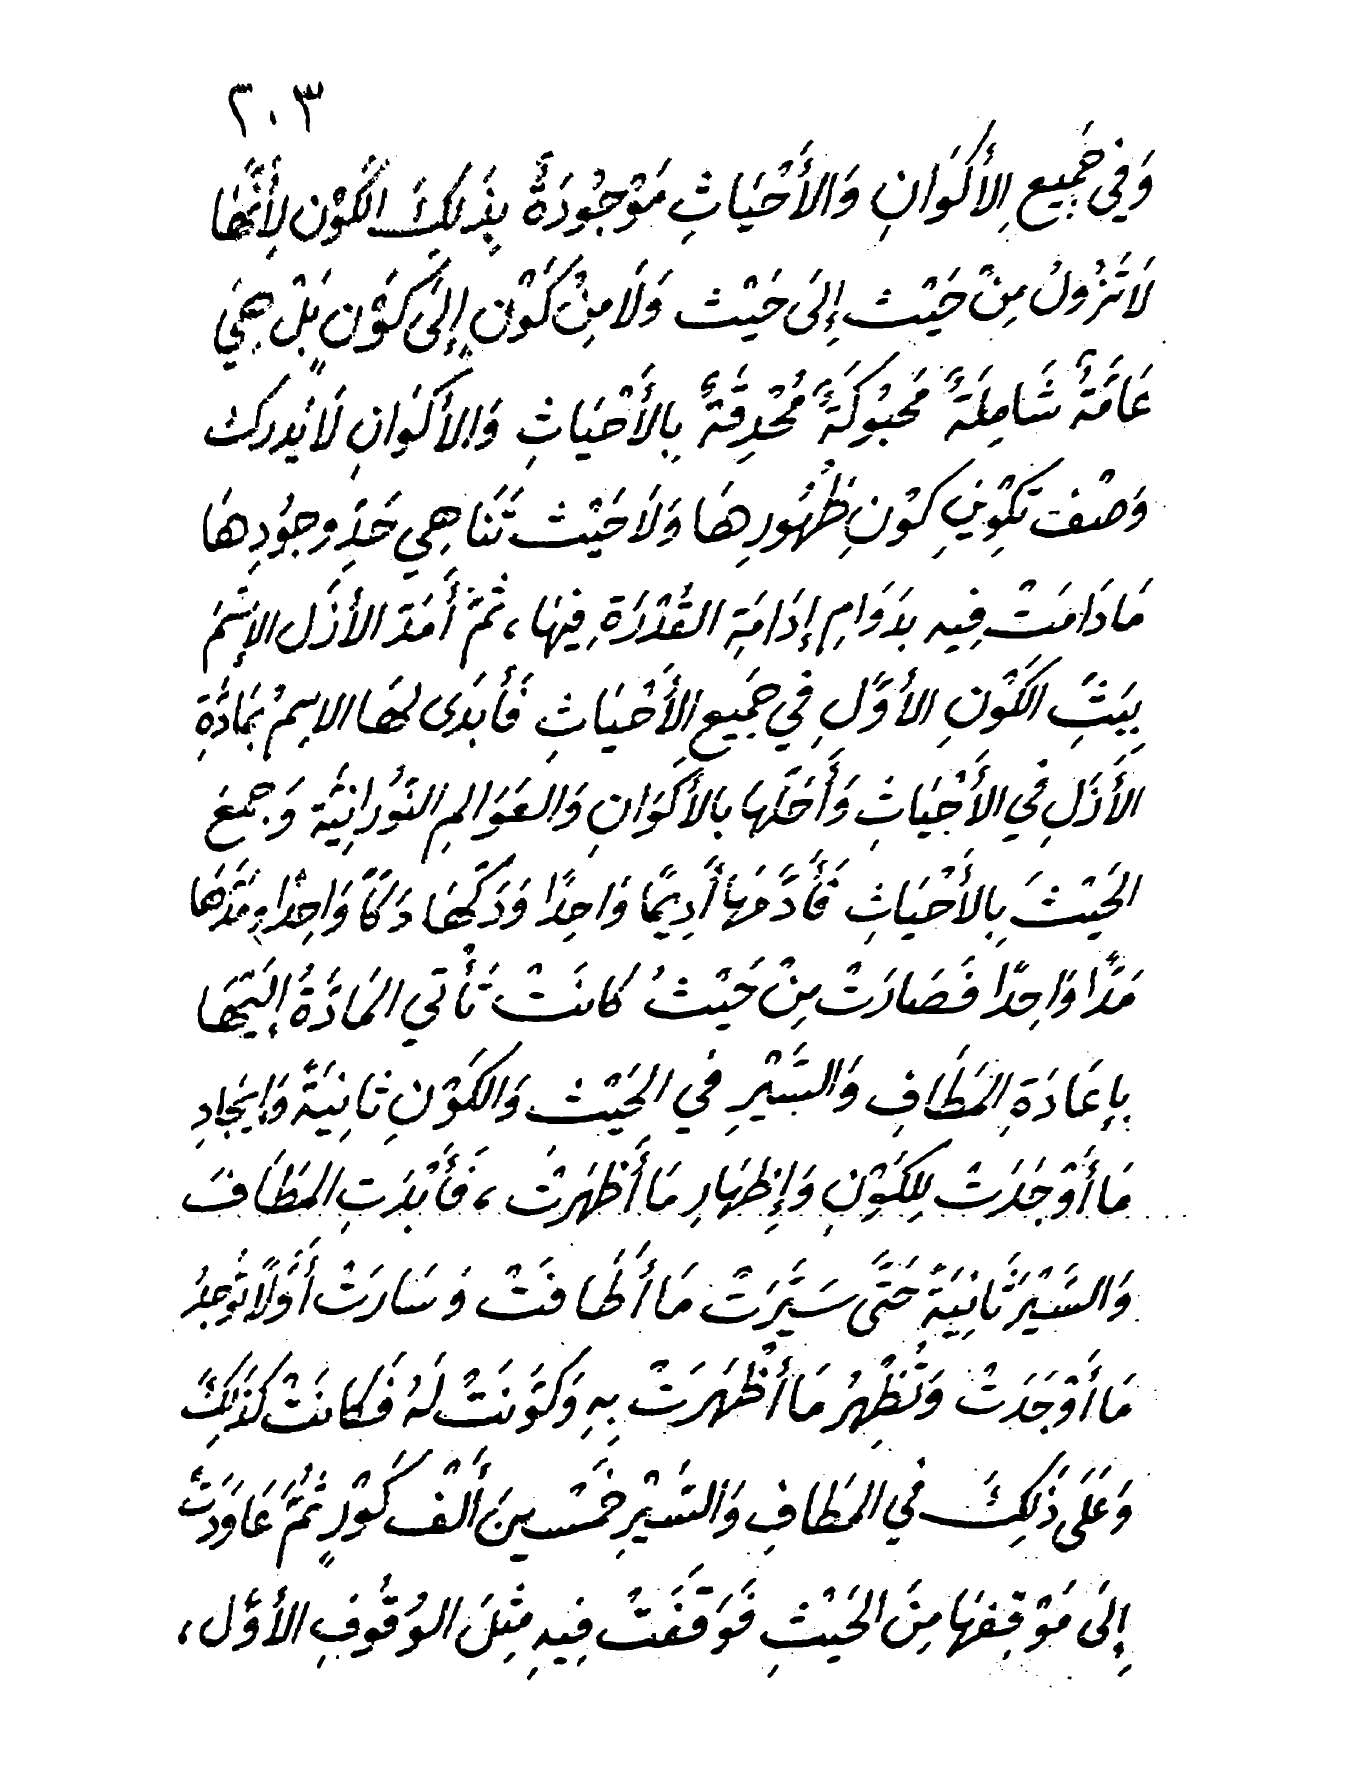 ٢٠٣
وَفِي جَمِيعِ الأَكْوَانِ وَالأَحْيَاثِ مَوْجُودَةٌ بِذَلِكَ الكَوْنِ لِأَنَّهَا
لَا تَزُولُ مِنْ حَيْث إِلَى حَيْث وَلَا مِنْ كَوْنٍ إِلَى كَوْنٍ بَلْ هِيَ
عَامَّةٌ شَامِلَةٌ مَحْبُوكَةٌ مُحْدِقَةٌ بِالأَحْيَاثِ وَالأَكْوَانِ لَا يُدرك
وَصْف تَكْوِينِ كَوْنِ ظُهُورِهَا وَلَا حَيْث تَنَاهِي حَدِّ وجُودِهَا
مَا دَامَتْ فِيهِ بدَوَامِ إِدَامَةِ القُدْرَةِ فِيهَا، ثُمَّ أَمَدَّ الأَزَل الإِسْمَ
بِبَثِّ الكَوْنِ الأَوَّلِ فِي جَمِيعِ الأَحْيَاثِ فَأَبدَى لهَا الاسِمُ بمَادَّةِ
الأَزَلِ فِي الأَحْيَاثِ وَأَحَلَّهَا بالأَكْوَانِ وَالعَوَالِمِ النُّورَانِيَّة وَجمعَ
الحَيْثَ بِالأَحْيَاثِ فَأَدَّمَهَا أَدِيمًا وَاحِدًا وَدَكَّهَا دَكًّا وَاحِدًا وَمَدَّهَا
مَدًّا وَاحِدًا فَصَارَتْ مِنْ حَيْثُ كَانَتْ تَأْتِي المَادَّةُ إِلَيْهَا
بِإِعَادَةِ المَطَافِ وَالسَّيْرِ فِي الحَيْث وَالكَوْنِ ثَانِيَةً وَإِيجَادِ
مَا أَوْجَدَتْ لِلكَوْنِ وَإِظهَارِ مَا أَظهَرَتْ، فَأَبْدَتِ المَطَافَ
وَالسَّيْرَ ثَانِيَةً حَتَّى سَيَّرَتْ مَا أَطَافَتْ وَسَارَتْ أَوَّلًا تُوجِدُ
مَا أَوْجَدَتْ وَتُظْهِرُ مَا أَظْهَرَتْ بِهِ وَكَوَّنَتْ لَهُ فَكَانَتْ كَذَلِكَ
وَعَلَى ذَلِكَ فِي المَطَافِ وَالسَّيْرِ خَمْسِينَ أَلْف كَوْرٍ ثُمَّ عَاوَدَتْ
إِلَى مَوْقِفِهَا مِنَ الحَيْثِ فَوَقَفَتْ فِيهِ مِثِلَ الوُقُوفِ الأَوَّل،